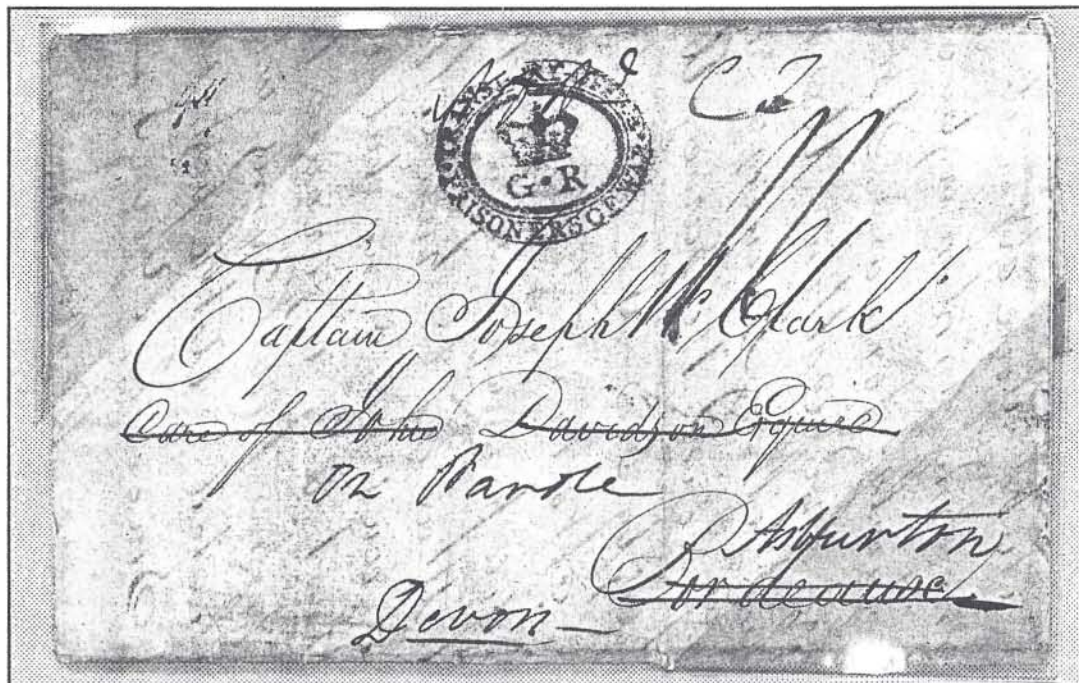 TRANSPORT OFFICE
PRISONERS OF WAR
G·R
Captain Joseph Mc Clark
Care of John Davidson Esquire
on Parole
Ashburton
Bordeaux
Devon